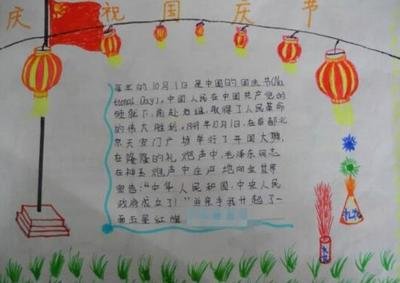 庆祝国庆节
每年的10月1日是中国的国庆节(Na
tional Day)。中国人民在中国共产党的
领导下，前赴后继，取得了人民革命
的伟大胜利。1949年10月1日，在首都北
京天安门广场举行了开国大典，
在隆隆的礼炮声中，毛泽东同志
在
宣告："中华人民共和国，中央人民
政府成立了！"并亲手我升起了一
面五星红旗